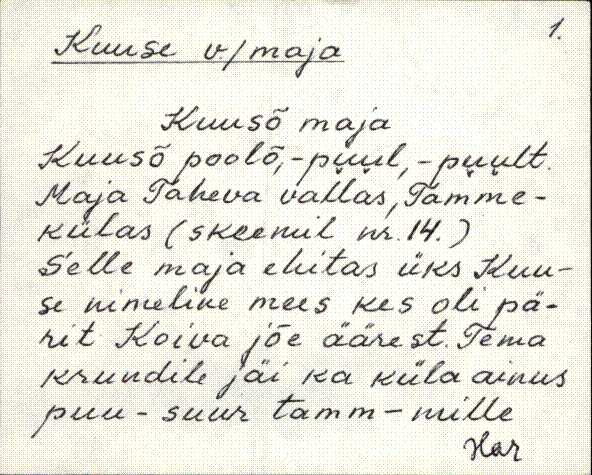 1.
Kuuse v./maja
Kuusõ maja
Kuusõ poolõ, -puul, -puult.
Maja Taheva vallas, Tamme-
külas (skeemil nr. 14.)
Selle maja ehitas üks Kuu-
se nimeline mees kes oli pä-
rit Koiva jõe äärest. Tema
krundile jäi ka küla ainus
puu - suur tamm - mille
Har